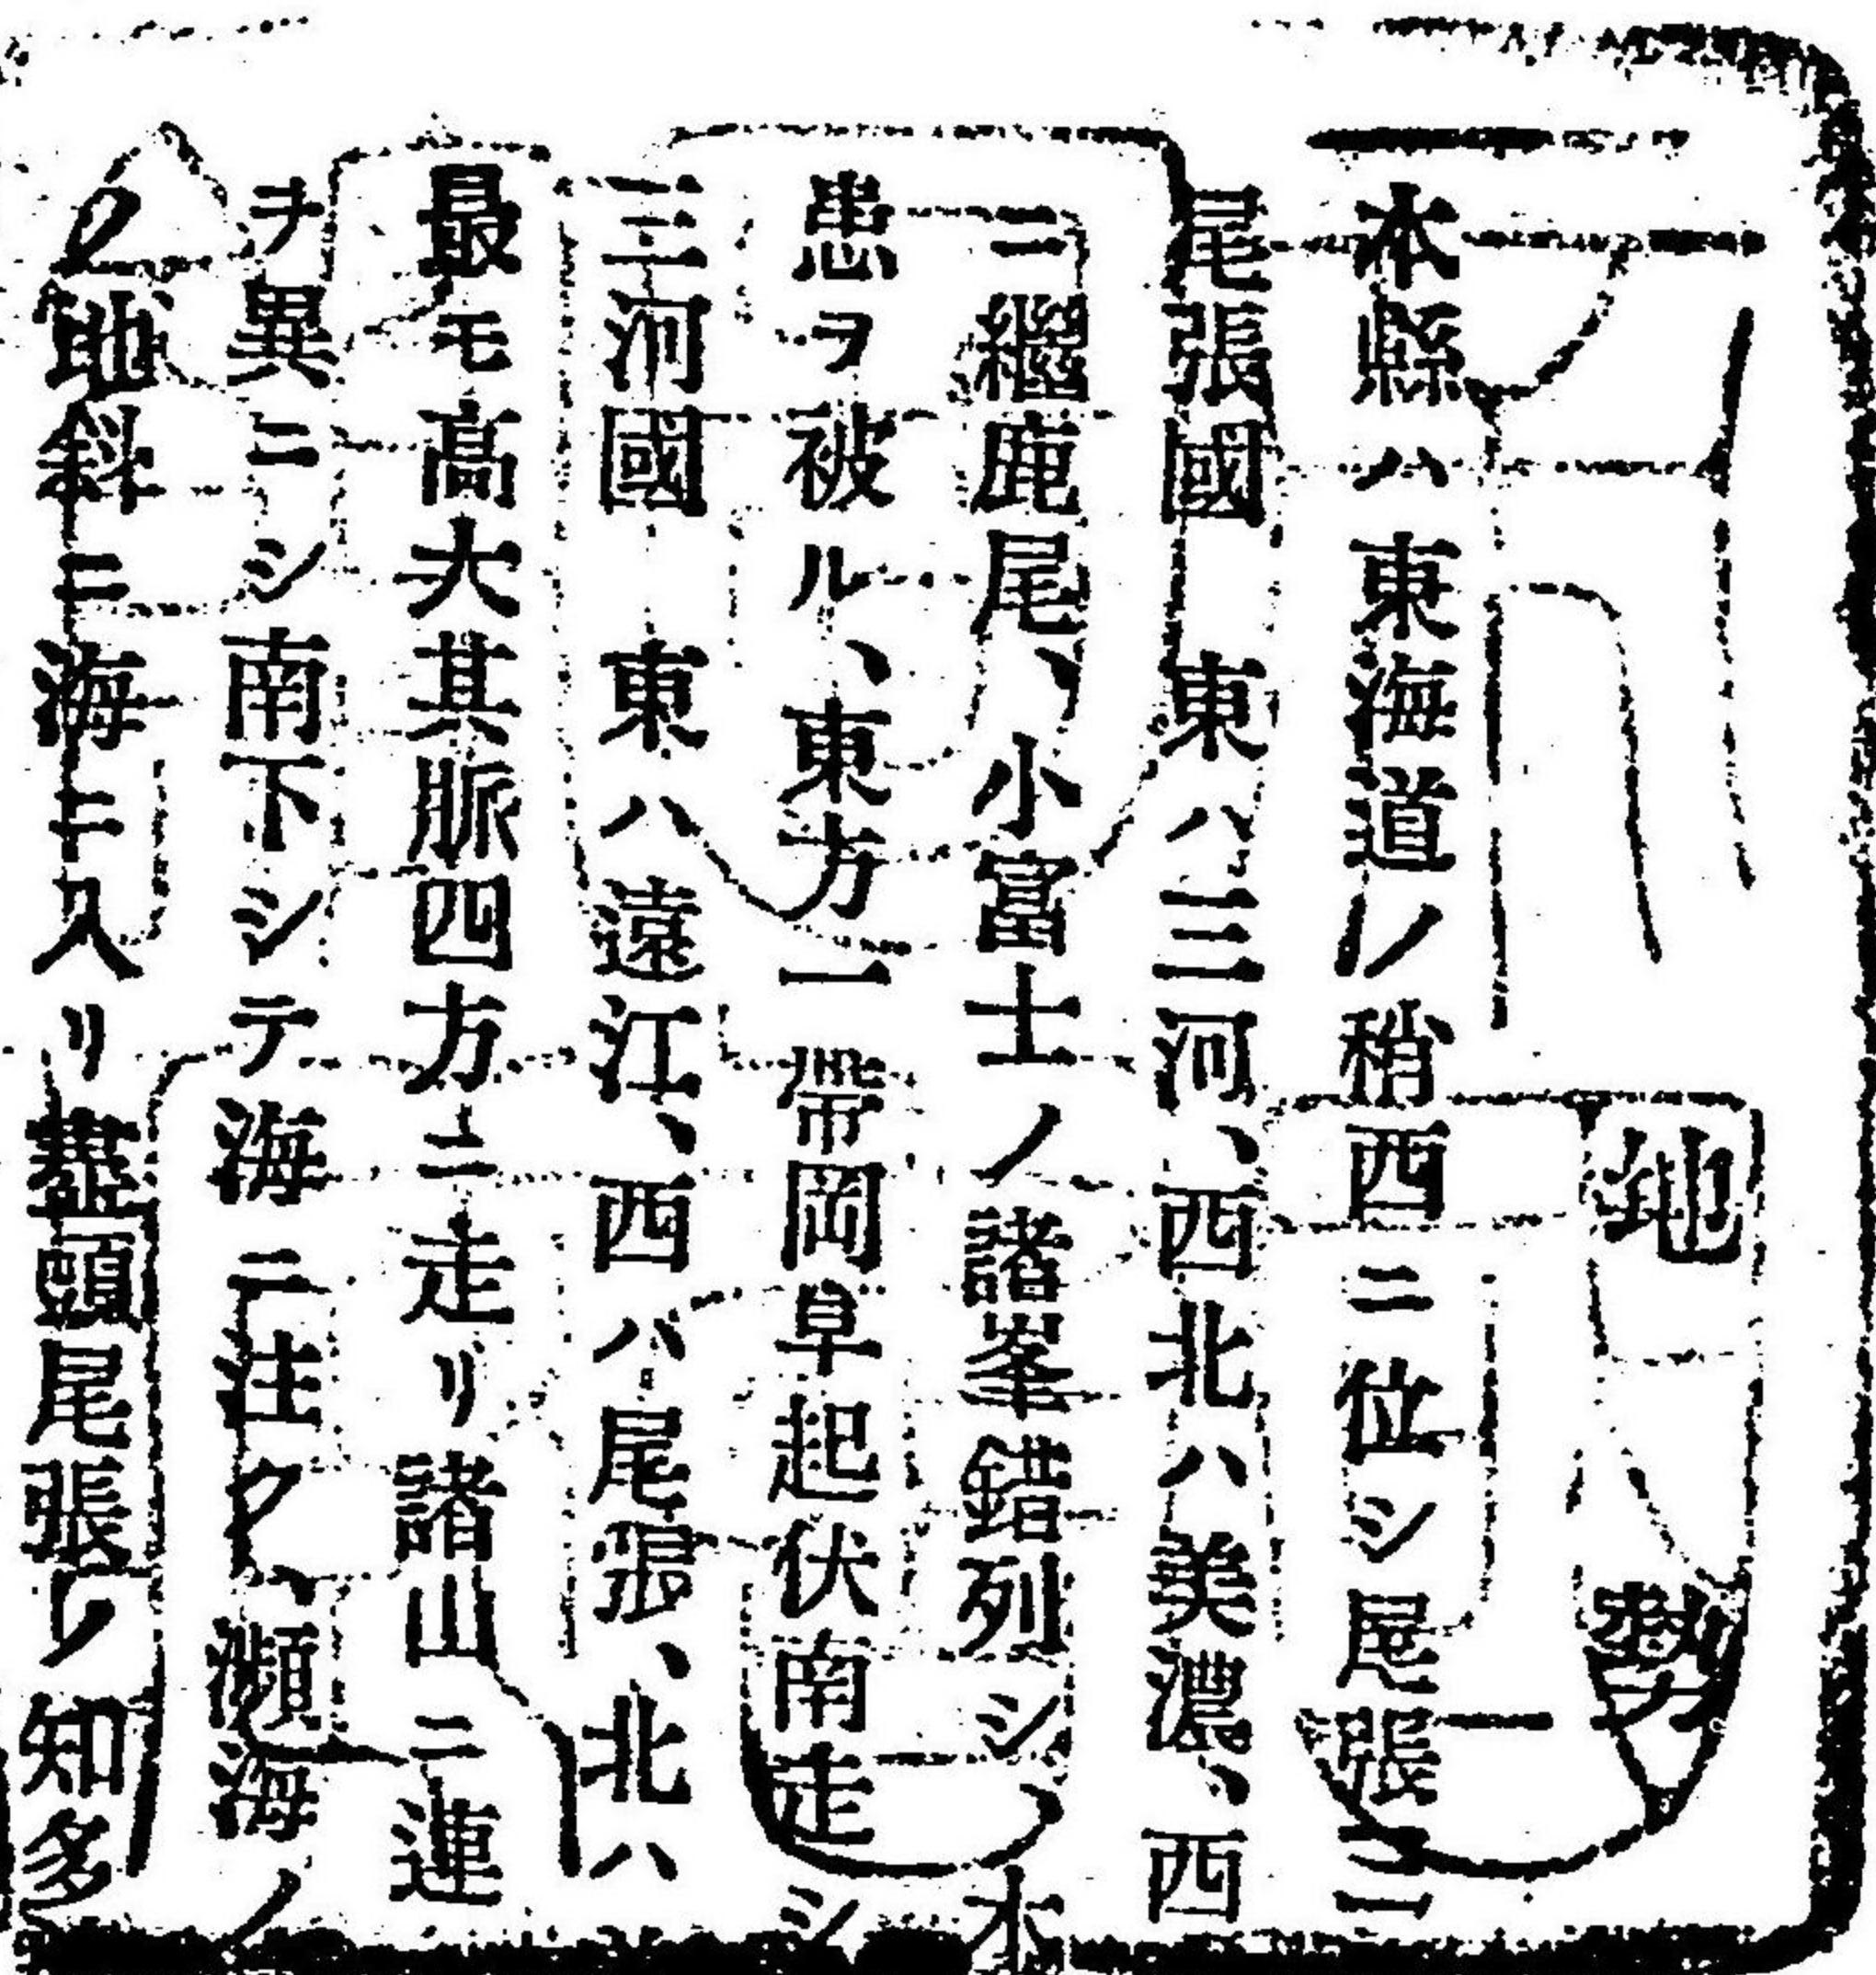 地勢
本縣ハ東海道ノ稍西ニ位シ尾張三
尾張國　東ハ三河、西北ハ美濃、西
ニ繼鹿尾、小富士ノ諸峯錯列シ、木
患ヲ被ル、東方一帶岡阜起伏南走シ
三河國　東ハ遠江、西ハ尾張、北ハ
最モ高大其脈四方ニ走リ諸山ニ連
ヲ異ニシ南下シテ海ニ注ク、瀕海ノ
ク地斜ニ海ニ入リ盡頭尾張ノ知多